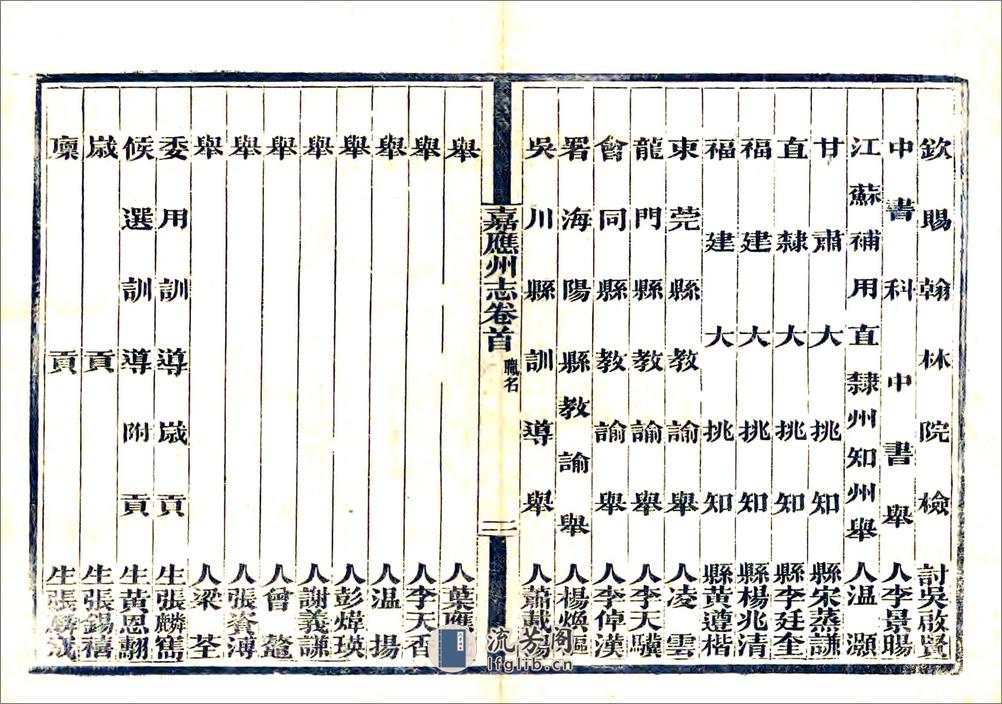 欽賜翰林院檢討吳啟賢
中書科中書舉人李景暘
江蘇補用直隸州知州舉人温灝
甘肅大挑知縣宋蓁謙
直隸大挑知縣李廷奎
福建大挑知縣楊兆清
福建大挑知縣黃遵楷
東莞縣教諭舉人凌雲
龍門縣教諭舉人李天驥
會同縣教諭舉人李倬漢
署海陽縣教諭舉人楊煥
吳川縣訓導舉人蕭載
嘉應州志卷首 職名 二
舉人葉應
舉人李天香
舉人温揚
舉人彭煒瑛
舉人謝義謙
舉人曾鼇
舉人張資溥
舉人梁荃
委用訓導歲貢生張麟雋
候選訓導附貢生黃恩翻
歲貢生張錫禧
廩貢生張成
流芳阁
lfglib.cn